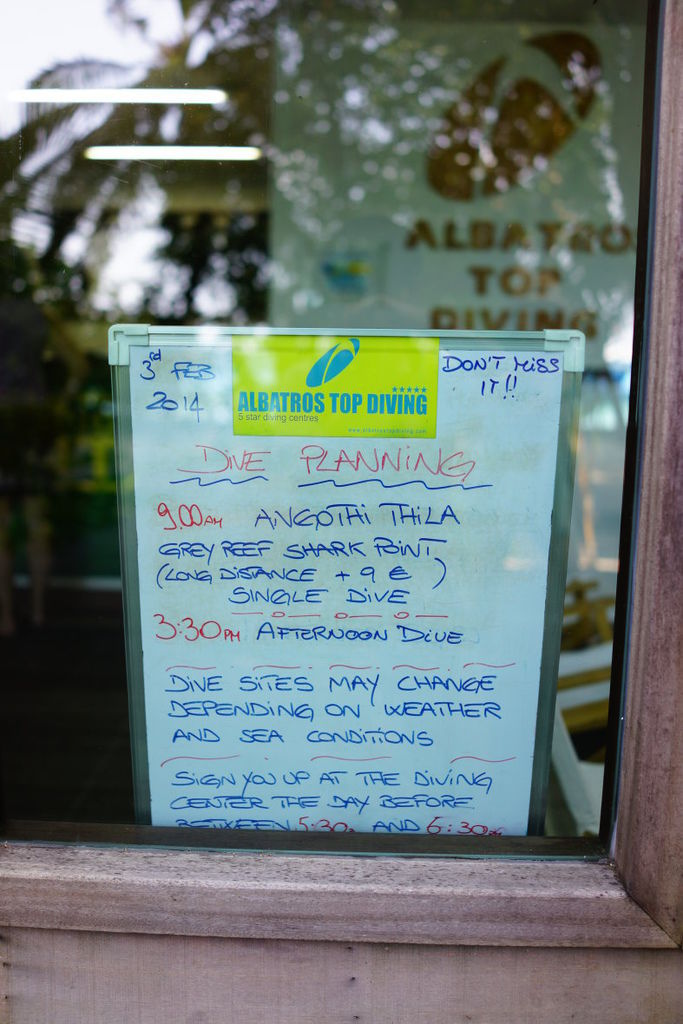 ALBATROS
TOP
DIVING
3rd FEB
2014
ALBATROS TOP DIVING
5 star diving centres
www.albatrostopdiving.com
DON'T MISS
IT!!
DIVE PLANNING
9.00AM ANGOTHI THILA
GREY REEF SHARK POINT
(LONG DISTANCE + 9 € )
SINGLE DIVE
3:30PM AFTERNOON DIVE
DIVE SITES MAY CHANGE
DEPENDING ON WEATHER
AND SEA CONDITIONS
SIGN YOU UP AT THE DIVING
CENTER THE DAY BEFORE
BETWEEN 5:30 AND 6:30